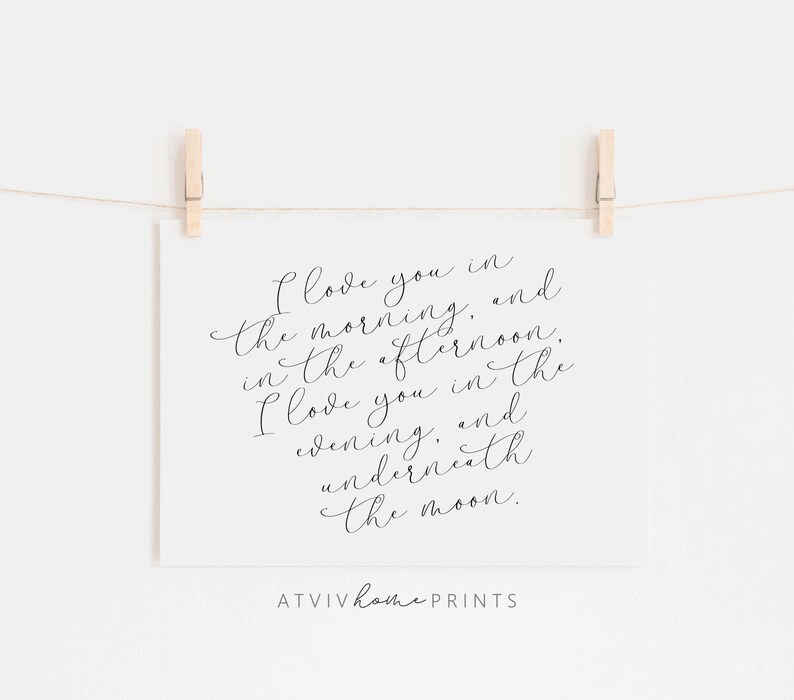 I love you in
the morning, and
in the afternoon,
I love you in the
evening, and
underneath
the moon.
ATVIV home PRINTS